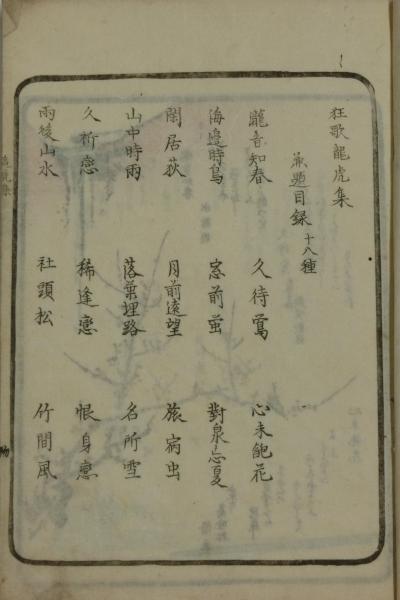 狂歌龍虎集
兼題目録 十八種
瀧音知春 久待鶯 心未飽花
海邉時鳥 窓前蛍 對泉忘夏
閑居荻 月前遠望 旅宿虫
山中時雨 落葉埋路 名所雪
久祈戀 稀逢戀 恨身戀
雨後山水 社頭松 竹間風